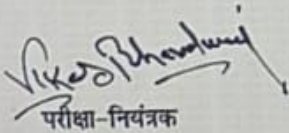 Vikas Bhardwaj
परीक्षा-नियंत्रक